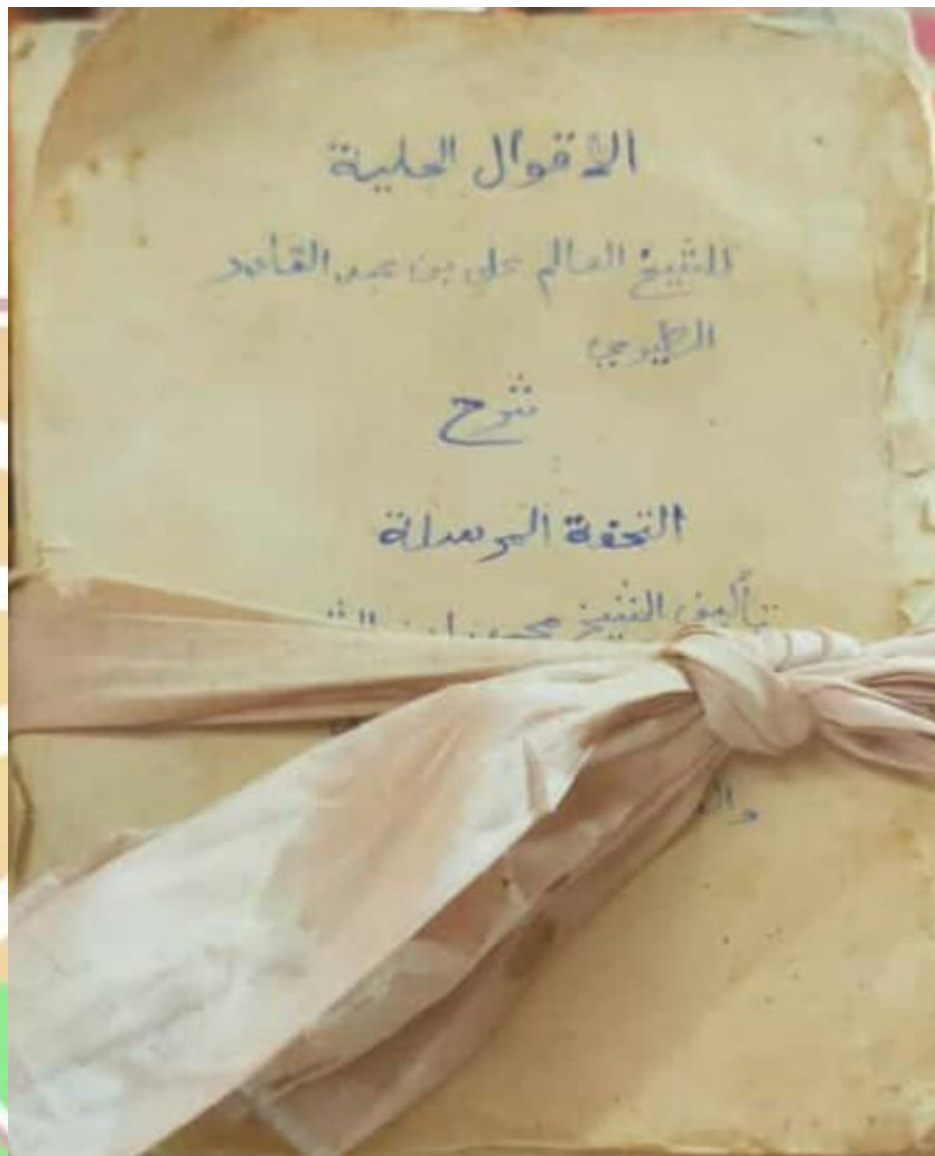 الأقوال الجلية
للشيخ العالم علي بن عبد القادر
شرح
التحفة المرسلة
تأليف الشيخ محمد ابن